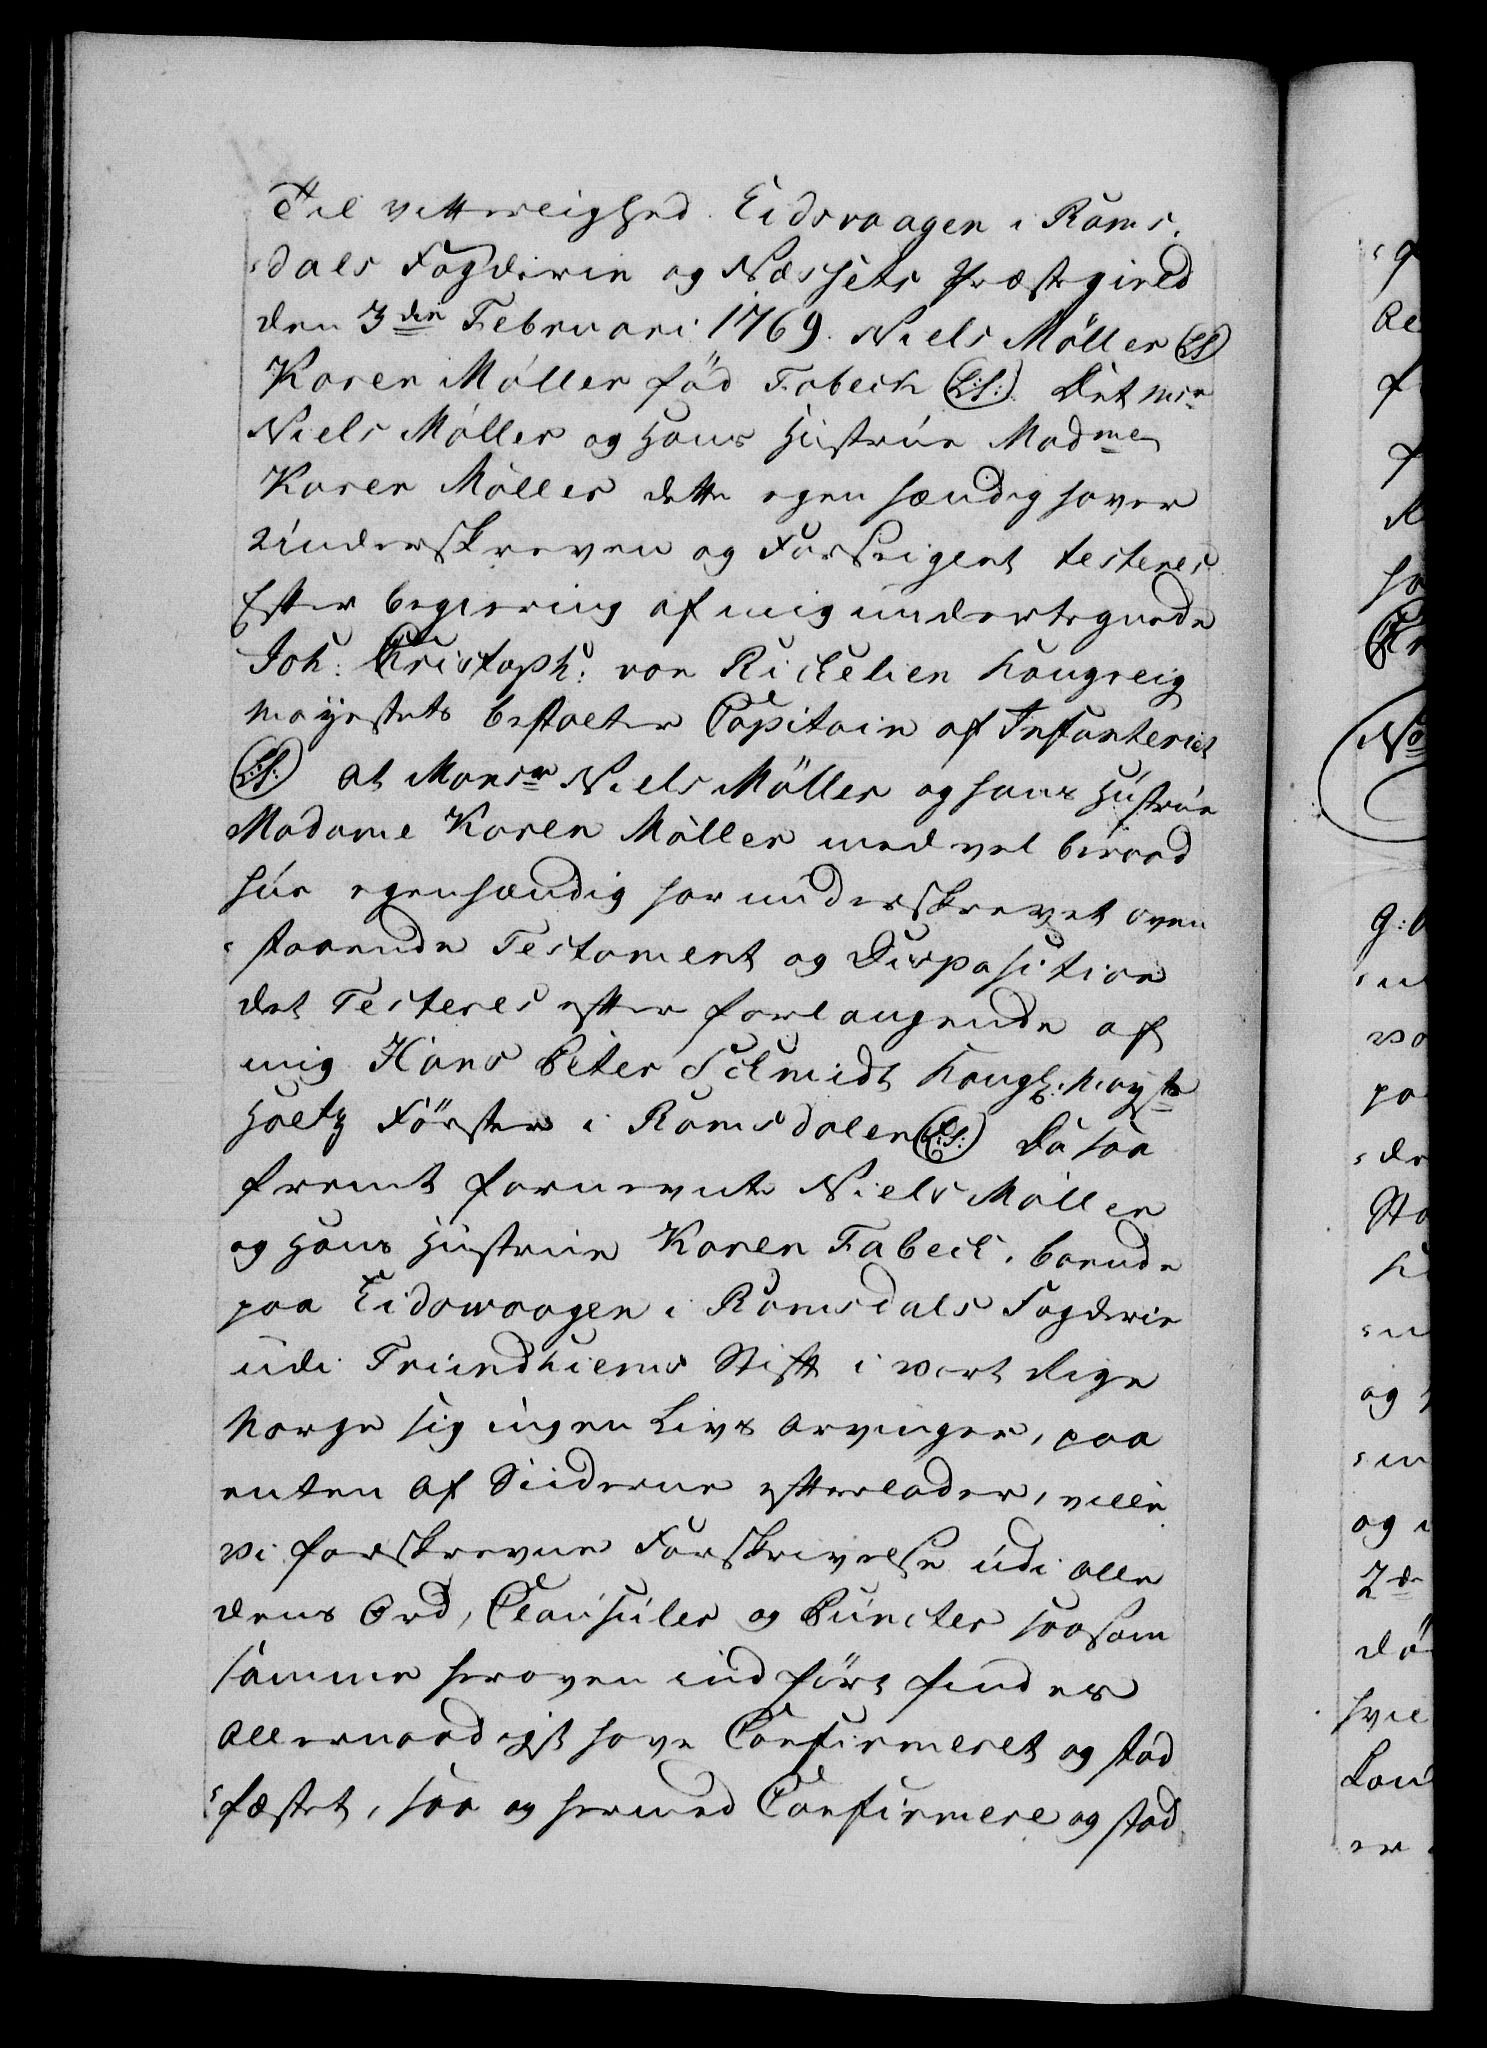 Til vitterlighed. Eidsvaagen i Roms-
-dals Fogderie og Nessets Præstegield
den 3die Februari 1769. Niels Möller (L:S:)
Karen Möller fød Fabech (L:S:). Det Msr
Niels Möller og Hans Hustrue Madme
Karen Möller dette egenhændig haver
underskreven og Forseiglet testeres
Efter begiering af mig undertegnede
Joh: Christoph: von Richelien Kongelig
Mayestets bestalter Capitain af Infanteriet
(L:S:) At Monsr Niels Möller og hans Hustrue
Madame Karen Möller med vel beraad
hue egenhændig har underskrevet oven
-staaende Testament og Disposition
det Testeres efter forlangende af
mig Hans Peter Schmidt Kongl: Mayts
Holtz Förster i Romsdalen (L:S:) Da saa
fremt fornevnte Niels Möller
og Hans Hustrue Karen Fabech, boende
paa Eidswaagen i Romsdals Fogderie
udi Trundhiems Stift i vort Rige
Norge sig ingen Livs Arvinger, paa
enten Af Siiderne efterlader, ville
vi forskrevne Forskrivelse udi alle
dens Ord, Clausuler og Puncter saasom
samme heroven indført findes
Allernaadigst have Confirmeret og stad
-fæstet, saa og hermed Confirmere og stad